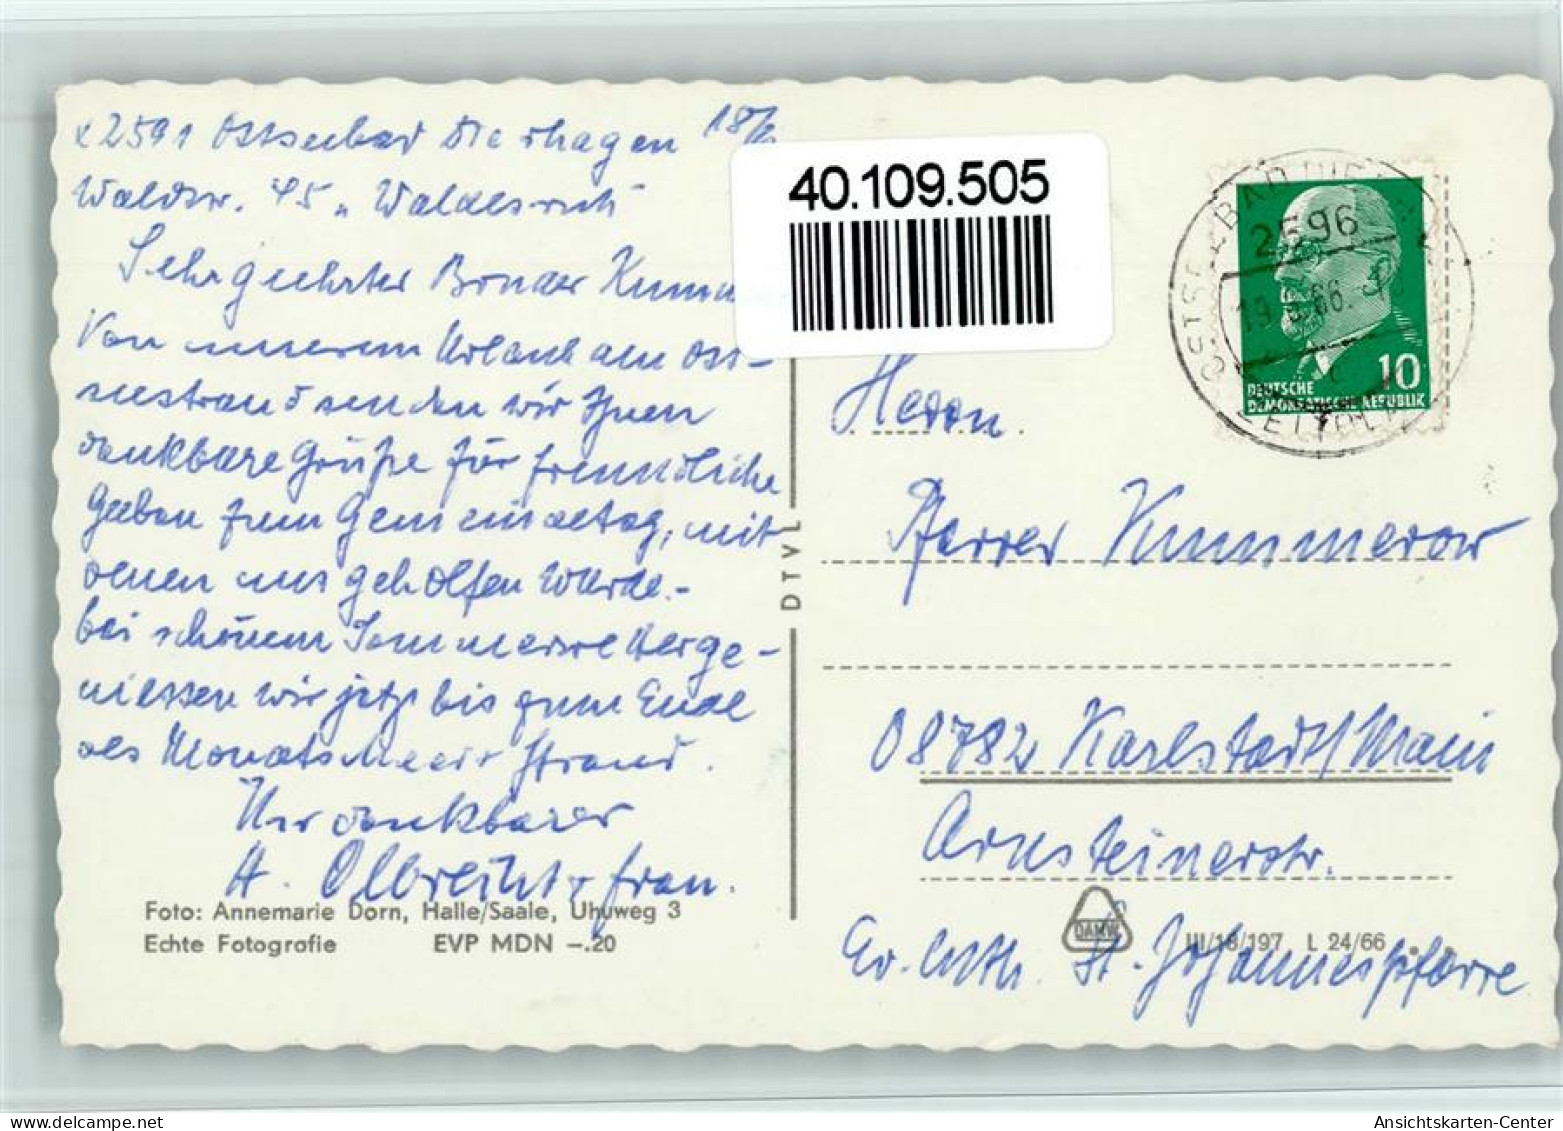 x 2591 Ostseebad Dierhagen 18/
Waldstr. 45 „ Waldesruh
Sehr geehrter Bruder Kumm
Von unserem Urlaub am Ost-
seestrand senden wir Ihnen
dankbare Grüße für freundliche
Gaben zum Gemeindetag, mit
denen uns geholfen wurde.-
bei schönem Sommerwetter ge-
niessen wir jetzt bis zum Ende
des Monats Meer + Strand.
Ihr dankbarer
A. Olbreicht + frau.
Foto: Annemarie Dorn, Halle/Saale, Uhuweg 3
Echte Fotografie EVP MDN –.20
DTVL
40.109.505
OSTSEEBAD DIE
2596
19. .66. 10
ZELTPL
10
DEUTSCHE
DEMOKRATISCHE REPUBLIK
Herrn
Pfarrer Kummerow
08782 Karlstadt/Main
Arnsteinerstr.
DAMW III/18/197 L 24/66
Ev. luth. St. Johannespfarre
delcampe.net
Ansichtskarten-Center